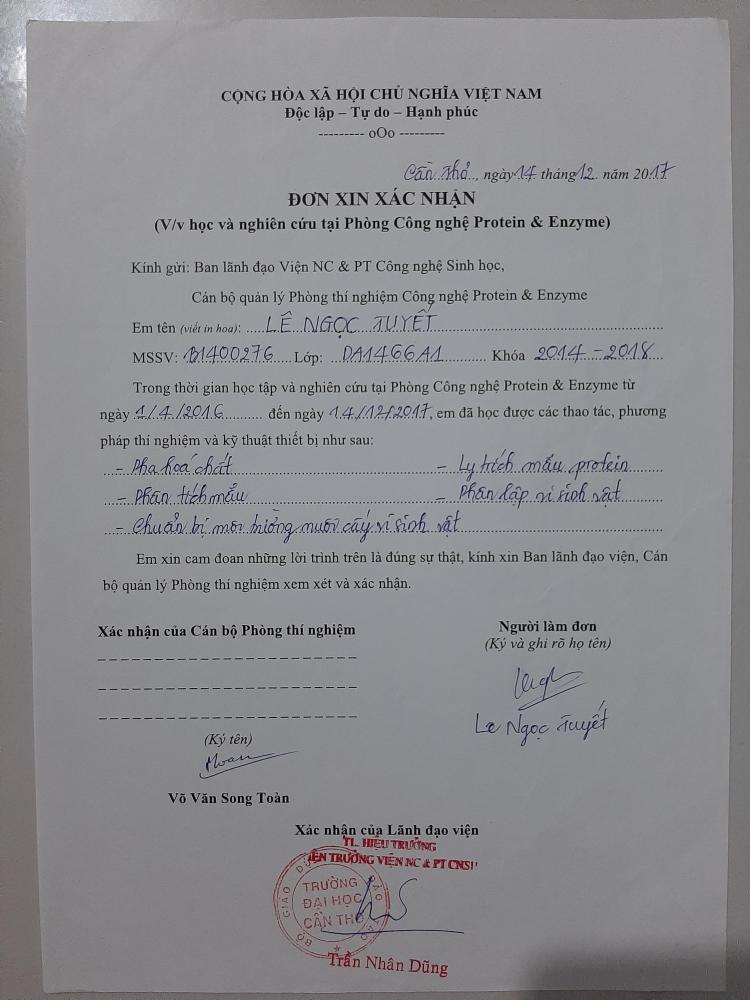 CỘNG HÒA XÃ HỘI CHỦ NGHĨA VIỆT NAM
Độc lập – Tự do – Hạnh phúc
--------- oOo ---------
Cần Thơ, ngày 14 tháng 12. năm 2017
ĐƠN XIN XÁC NHẬN
(V/v học và nghiên cứu tại Phòng Công nghệ Protein & Enzyme)
Kính gửi: Ban lãnh đạo Viện NC & PT Công nghệ Sinh học,
Cán bộ quản lý Phòng thí nghiệm Công nghệ Protein & Enzyme
Em tên (viết in hoa): LÊ NGỌC TUYẾT
MSSV: B1400276 Lớp: DA1466A1 Khóa 2014 - 2018
Trong thời gian học tập và nghiên cứu tại Phòng Công nghệ Protein & Enzyme từ
ngày 1/4/2016 đến ngày 14/12/2017, em đã học được các thao tác, phương
pháp thí nghiệm và kỹ thuật thiết bị như sau:
- Pha hoá chất - Ly trích mẫu protein
- Phân tích mẫu - Phân lập vi sinh vật
- Chuẩn bị môi trường nuôi cấy vi sinh vật
Em xin cam đoan những lời trình trên là đúng sự thật, kính xin Ban lãnh đạo viện, Cán
bộ quản lý Phòng thí nghiệm xem xét và xác nhận.
Xác nhận của Cán bộ Phòng thí nghiệm
Người làm đơn
(Ký và ghi rõ họ tên)
Le Ngọc Tuyết
(Ký tên)
Võ Văn Song Toàn
Xác nhận của Lãnh đạo viện
TL. HIỆU TRƯỞNG
VIỆN TRƯỞNG VIỆN NC & PT CNSH
BỘ GIÁO DỤC ĐÀO TẠO
TRƯỜNG
ĐẠI HỌC
CẦN THƠ
Trần Nhân Dũng